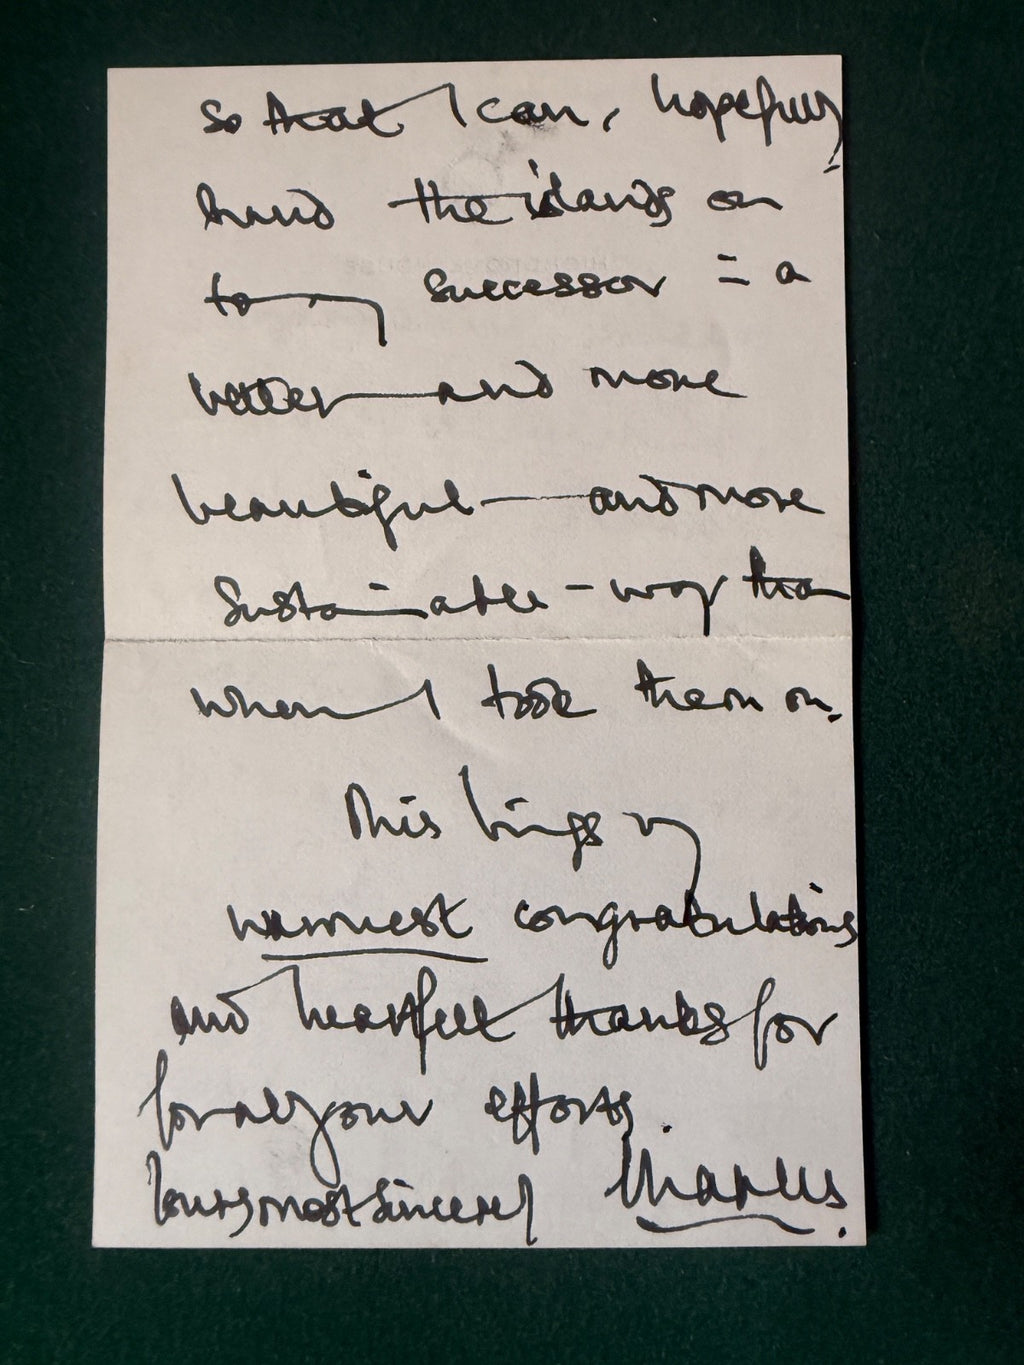 so that I can, hopefully,
hand the islands on
to my successor = a
better and more
beautiful and more
sustainable - way than
when I took them on.
This brings my
warmest congratulations
and heartfelt thanks for
for all your efforts.
Yours most sincerely Charles.